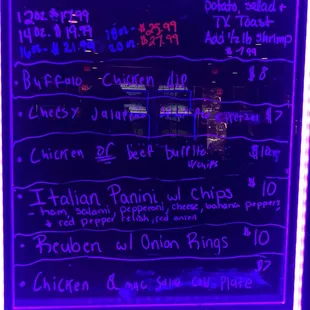 12oz $17.99
potato, salad &
14oz. $19.99
TX Toast
18oz - $25.99
Add 1/2 lb shrimp
16oz - $21.99
20oz - $27.99
$7.99
Buffalo Chicken dip $8
• Cheesy pretzel $7
• Chicken OR beef burrito
w/chips
• Italian Panini w/ Chips $10
ham, salami, pepperoni, cheese, banana peppers
& red pepper relish, red onion
• Reuben w/ Onion Rings $10
• Chicken & Plate $7